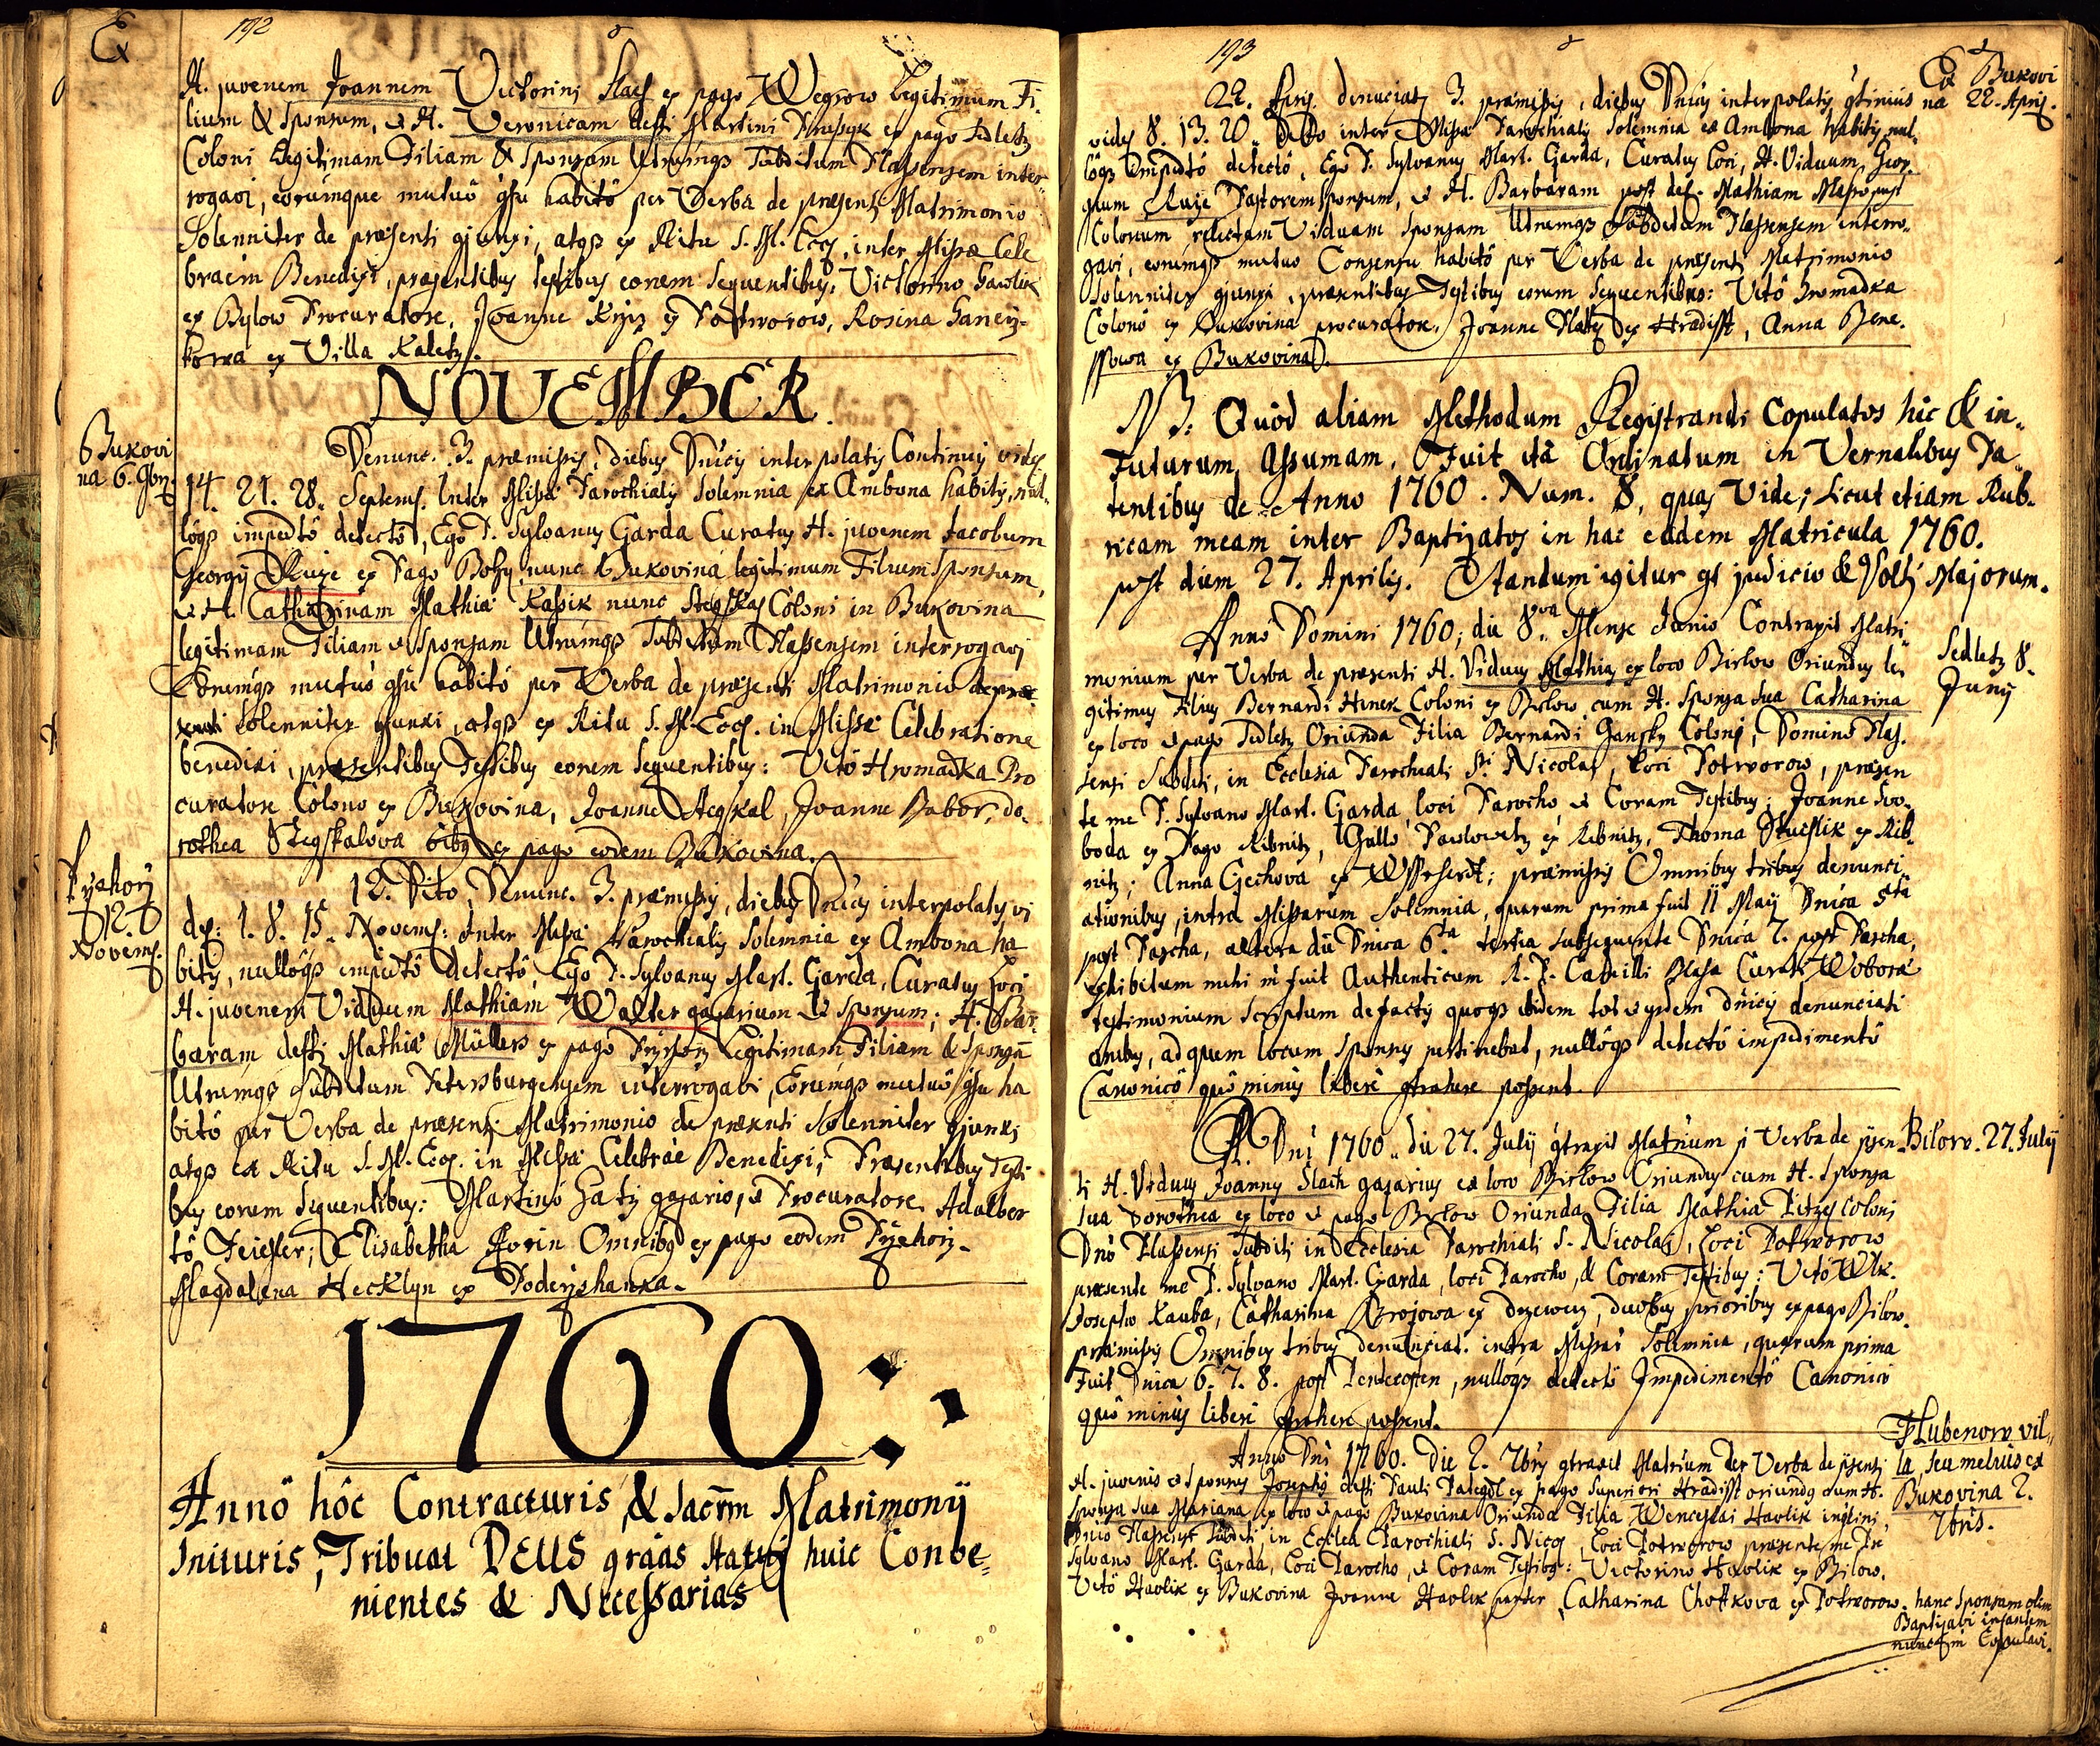 192
Ex
H. juvenem Joannem Victorini Slach ex pago Wegrow Legitimum Fi-
lium & Sponsum, & H. Veronicam deffi Martini ex pago Sedletz
Coloni Legitimam Filiam & Sponsam Utrumqs Subditum Plassensem inter-
rogavi, eorumque mutuô gsu habitô per Verba de præsenti Matrimonio
Solenniter de præsenti gjunxi, atqs ex Ritu S. M. Eccq. inter Missæ Cele
braem Benedixi, præsentibus testibus eorem Sequentibus, Victorino Hawlik
ex Bylow Procuratore, Joanne ex Potworow, Rosina
ex Villa Kaletz.
NOVEMBER.
Bukovi
na 6. 9bris.
Denunc. 3. præmissis, diebus Dnicis interpolatis Continuis videl
14. 21. 28. Septemb. Inter Missæ Parochialis Solemnia ex Ambona habitis, nul-
lôqs impedtô detectô, Ego P. Sylvanus Garda Curatus H. juvenem Jacobum
Georgij Ruze ex Pago Bohy, nunc Bukovina legitimum Filium Sponsum,
& H. Catharinam Mathiæ Kassik nunc Stegskal Coloni in Bukovina
legitimam Filiam & Sponsam Utrumqs Subditum Plassensem interrogavi
Eorumqs mutuô gsu habitô per Verba de præsenti Matrimonio de præ
senti Solenniter gjunxi, atqs ex Ritu S. M. Eccq. in Missæ Celebratione
benedixi, præsentibus Testibus eorem Sequentibus: Vitô Hromadka Pro
curatore Colono ex Bukovina, Joanne Stegskal, Joanne Babor, Do-
rothea Stegskalova oibq ex pago eodem Bukovina.
Pržehorž
12.
Novemb.
12. Dito, Denunc. 3. præmissis, diebus Dnicis interpolatis vi
del: 1. 8. 15. Novemb: Inter Missæ Parochialis Solemnia ex Ambona ha
bitis, nullôqs impedtô detectô Ego P. Sylvanus Mart. Garda, Curatus Loci
H. juvenem Viduum Mathiam Walter gazarium & Sponsum; H. Bar-
baram deffi Mathiæ Müllers ex pago Legitimam Filiam & Sponsam
Utrumqs Subditum Petersburgensem interrogavi, Eorumqs mutuô gsu ha
bitô per Verba de præsenti Matrimonio de præsenti Solenniter gjunxi
atqs ex Ritu S. M. Eccq. in Missæ Celebrae Benedixi; Præsentibus Testi
bus eorum Sequentibus: Martinô gazario, & Procuratore, Adalber
tô Elisabetha Omnibq ex pago eodem
Magdalena Hecklyn ex Poderžshanka.
1760:.
Annô hôc Contracturis, & Sacrm Matrimonij
Inituris, Tribuat DEUS gráas Statui huic Conve-
nientes & Necessarias
193
Ex Bukovi
na 22. Aprij.
22. Apris. denuciatis 3. præmissis, diebus Dnicis interpolatis gtinius
videl 8. 13. 20. Dito inter Missæ Parochialis Solemnia ex Ambona habitis, nul-
lôqs Impedtô detectô, Ego P. Sylvanus Mart. Garda, Curatus Loci, H. Viduum, Geor-
gium Ruze Pastorem Sponsum, & H. Barbaram post def. Mathiam
Colonum relictam Viduam Sponsam Utrumqs Subditum Plassensem interro-
gavi, eorumqs mutuo Consensu habitô per Verba de præsenti Matrimonio
Solenniter gjunxi, præsentibus Testibus eorum Sequentibus: Vitô Hromadka
Colonô ex Bukovina procurator, Joanne ex Hradisst, Anna Bene-
ssowa ex Bukovina.
NB: Quôd aliam Methodum Registrandi Copulatos hîc & in-
Futurum Assumam, Fuit itâ Ordinatum in Vernalibus Pa-
tentibus de Anno 1760. Num. 8, quas Vide; sicut etiam Rub-
ricam meam inter Baptizatos in hac eâdem Matricula 1760.
post diem 27. Aprilis. Standum igitur gs judicio & Volti Majorum.
Sedletz 8.
Junij
Anno Domini 1760; die 8va Mense Junio Contraxit Matri-
monium per Verba de præsenti H. Viduus Mathias ex loco Birlow Oriundus le-
gitimus Filius Bernardi Hinek Coloni ex Birlow cum H. Sponsa Sua Catharina
ex loco & pago Sedletz Oriunda Filia Bernardi Jansky Coloni, Domino Plas-
sensi Subditi, in Ecclesia Parochiali Sti Nicolai, Loci Potworow, præsen
te me P. Sylvano Mart. Garda, loci Parocho & Coram Testibus; Joanne Svo-
boda ex Pago Ribnitz, Gallo Pawlowetz ex Ribnitz, Thoma ex Rib-
nitz; Anna Czechova ex præmissis Omnibus tribus denunci-
ationibus, intra Missarum Solemnia, quarum prima fuit 11 Maij Dnica 5ta
post Pascha, altera dii Dnica 6ta tertia subsequente Dnica 7. post Pascha,
Exhibitum mihi fuit Authenticum R. P. Camilli Curati
testimonium Scriptum defactis quoqs ibidem tot dnicis denunciati
onibus, ad quem locum Sponsus pertinebat, nullôqs detectô impedimentô
Canonicô quô minùs liberè gtrahere possent.
Bilow. 27. Julij
A. Dni 1760. die 27. Julij gtraxit Matrium p Verba de pjsen-
ti H. Viduus Joannes Slach gazarius ex loco Birlow Oriundus cum H. Sponsa
sua Dorothea ex loco & pago Birlow Oriunda Filia Mathiæ coloni
Dnô Plassensi Subditi in Ecclesia Parochiali S. Nicolai, Loci Potworow
præsente me P. Sylvano Mart. Garda, loci Parocho, & Coram Testibus: Vitô Wlk.
Josepho Kauba, Catharina ex duobus prioribus ex pago Bilow.
præmissis Omnibus tribus denunciat. intra Missæ Solemnia, quarum prima
Fuit Dnica 6. 7. 8. post Pentecosten, nullôqs detectô Impedimentô Canonicô
quô minùs liberè gtrahere possent.
Hlubenow vil-
la, seu melius ex
Bukovina 2.
7bris.
Anno Dni 1760. Die 2. 7bris gtraxit Matrium Per Verba de pjsenti
H. juvenis & Sponsus Josephus deffi Pauli ex pago Superiori Hradisst oriundq cum H.
Sponsa Sua Mariana ex loco & pago Bukovina Oriunda Filia Wenceslai Hawlik inqlini,
Dnio Plassensi Subditi, in Ecclea Parochiali S. Nicq, Loci Potworow præsente me Pre
Sylvano Mart. Garda, Loci Parocho, & Coram Testibq: Victorino Hawlik ex Bilow,
Vitô Hawlik ex Bukovina Joanne Hawlik pariter, Catharina Chottkova ex Potworow.
hanc Sponsam olim
Baptizavi infantem
nunc Copulavi.